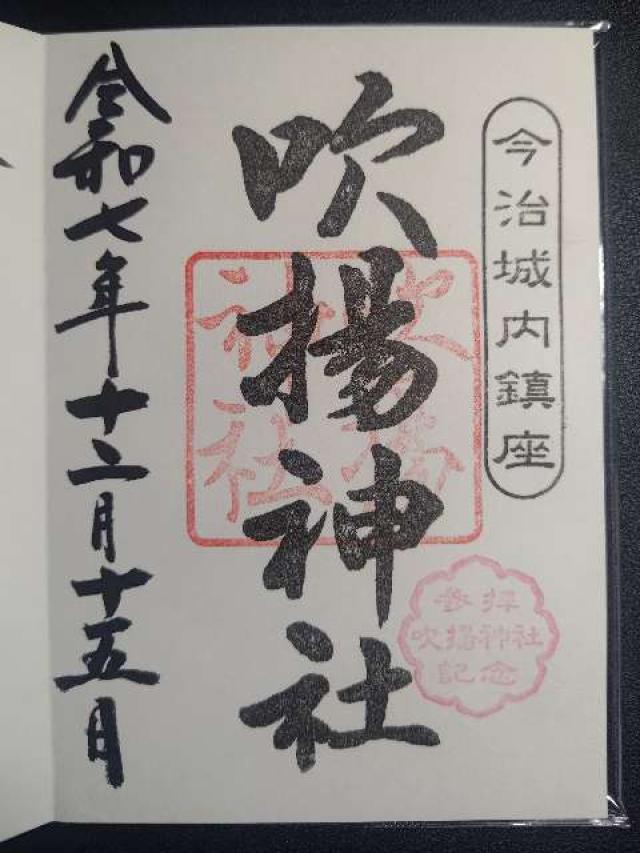 今治城内鎮座
吹揚神社
吹揚
神社
参拝
吹揚神社
記念
令和七年十二月十五日